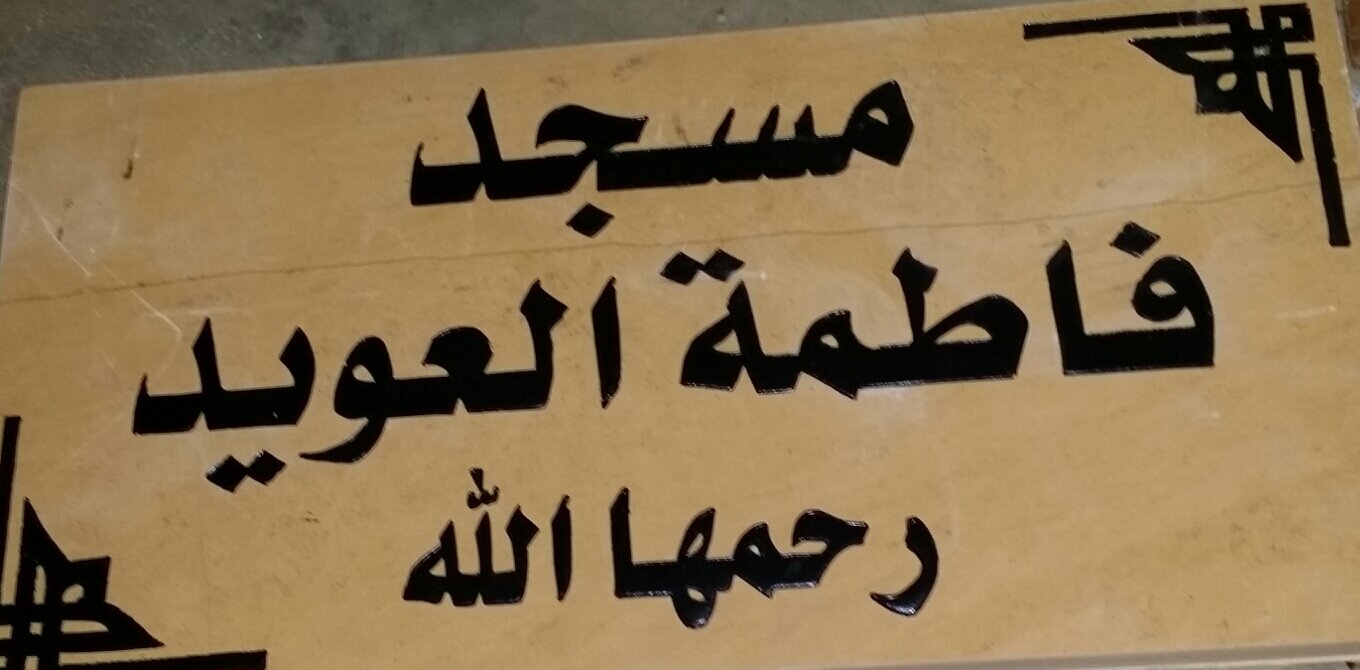 مسجد
فاطمة العويد
رحمها الله